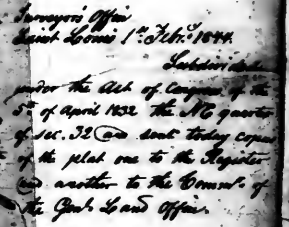 Surveyor's Office
Saint Louis 1st Feb.y 1844.
Subdivided
under the Act of Congress of the
5th of April 1832 the NE quarter
of sec. 32 and sent today copies
of the plat one to the Register
and another to the Commr. of
the Genl. Land Office.